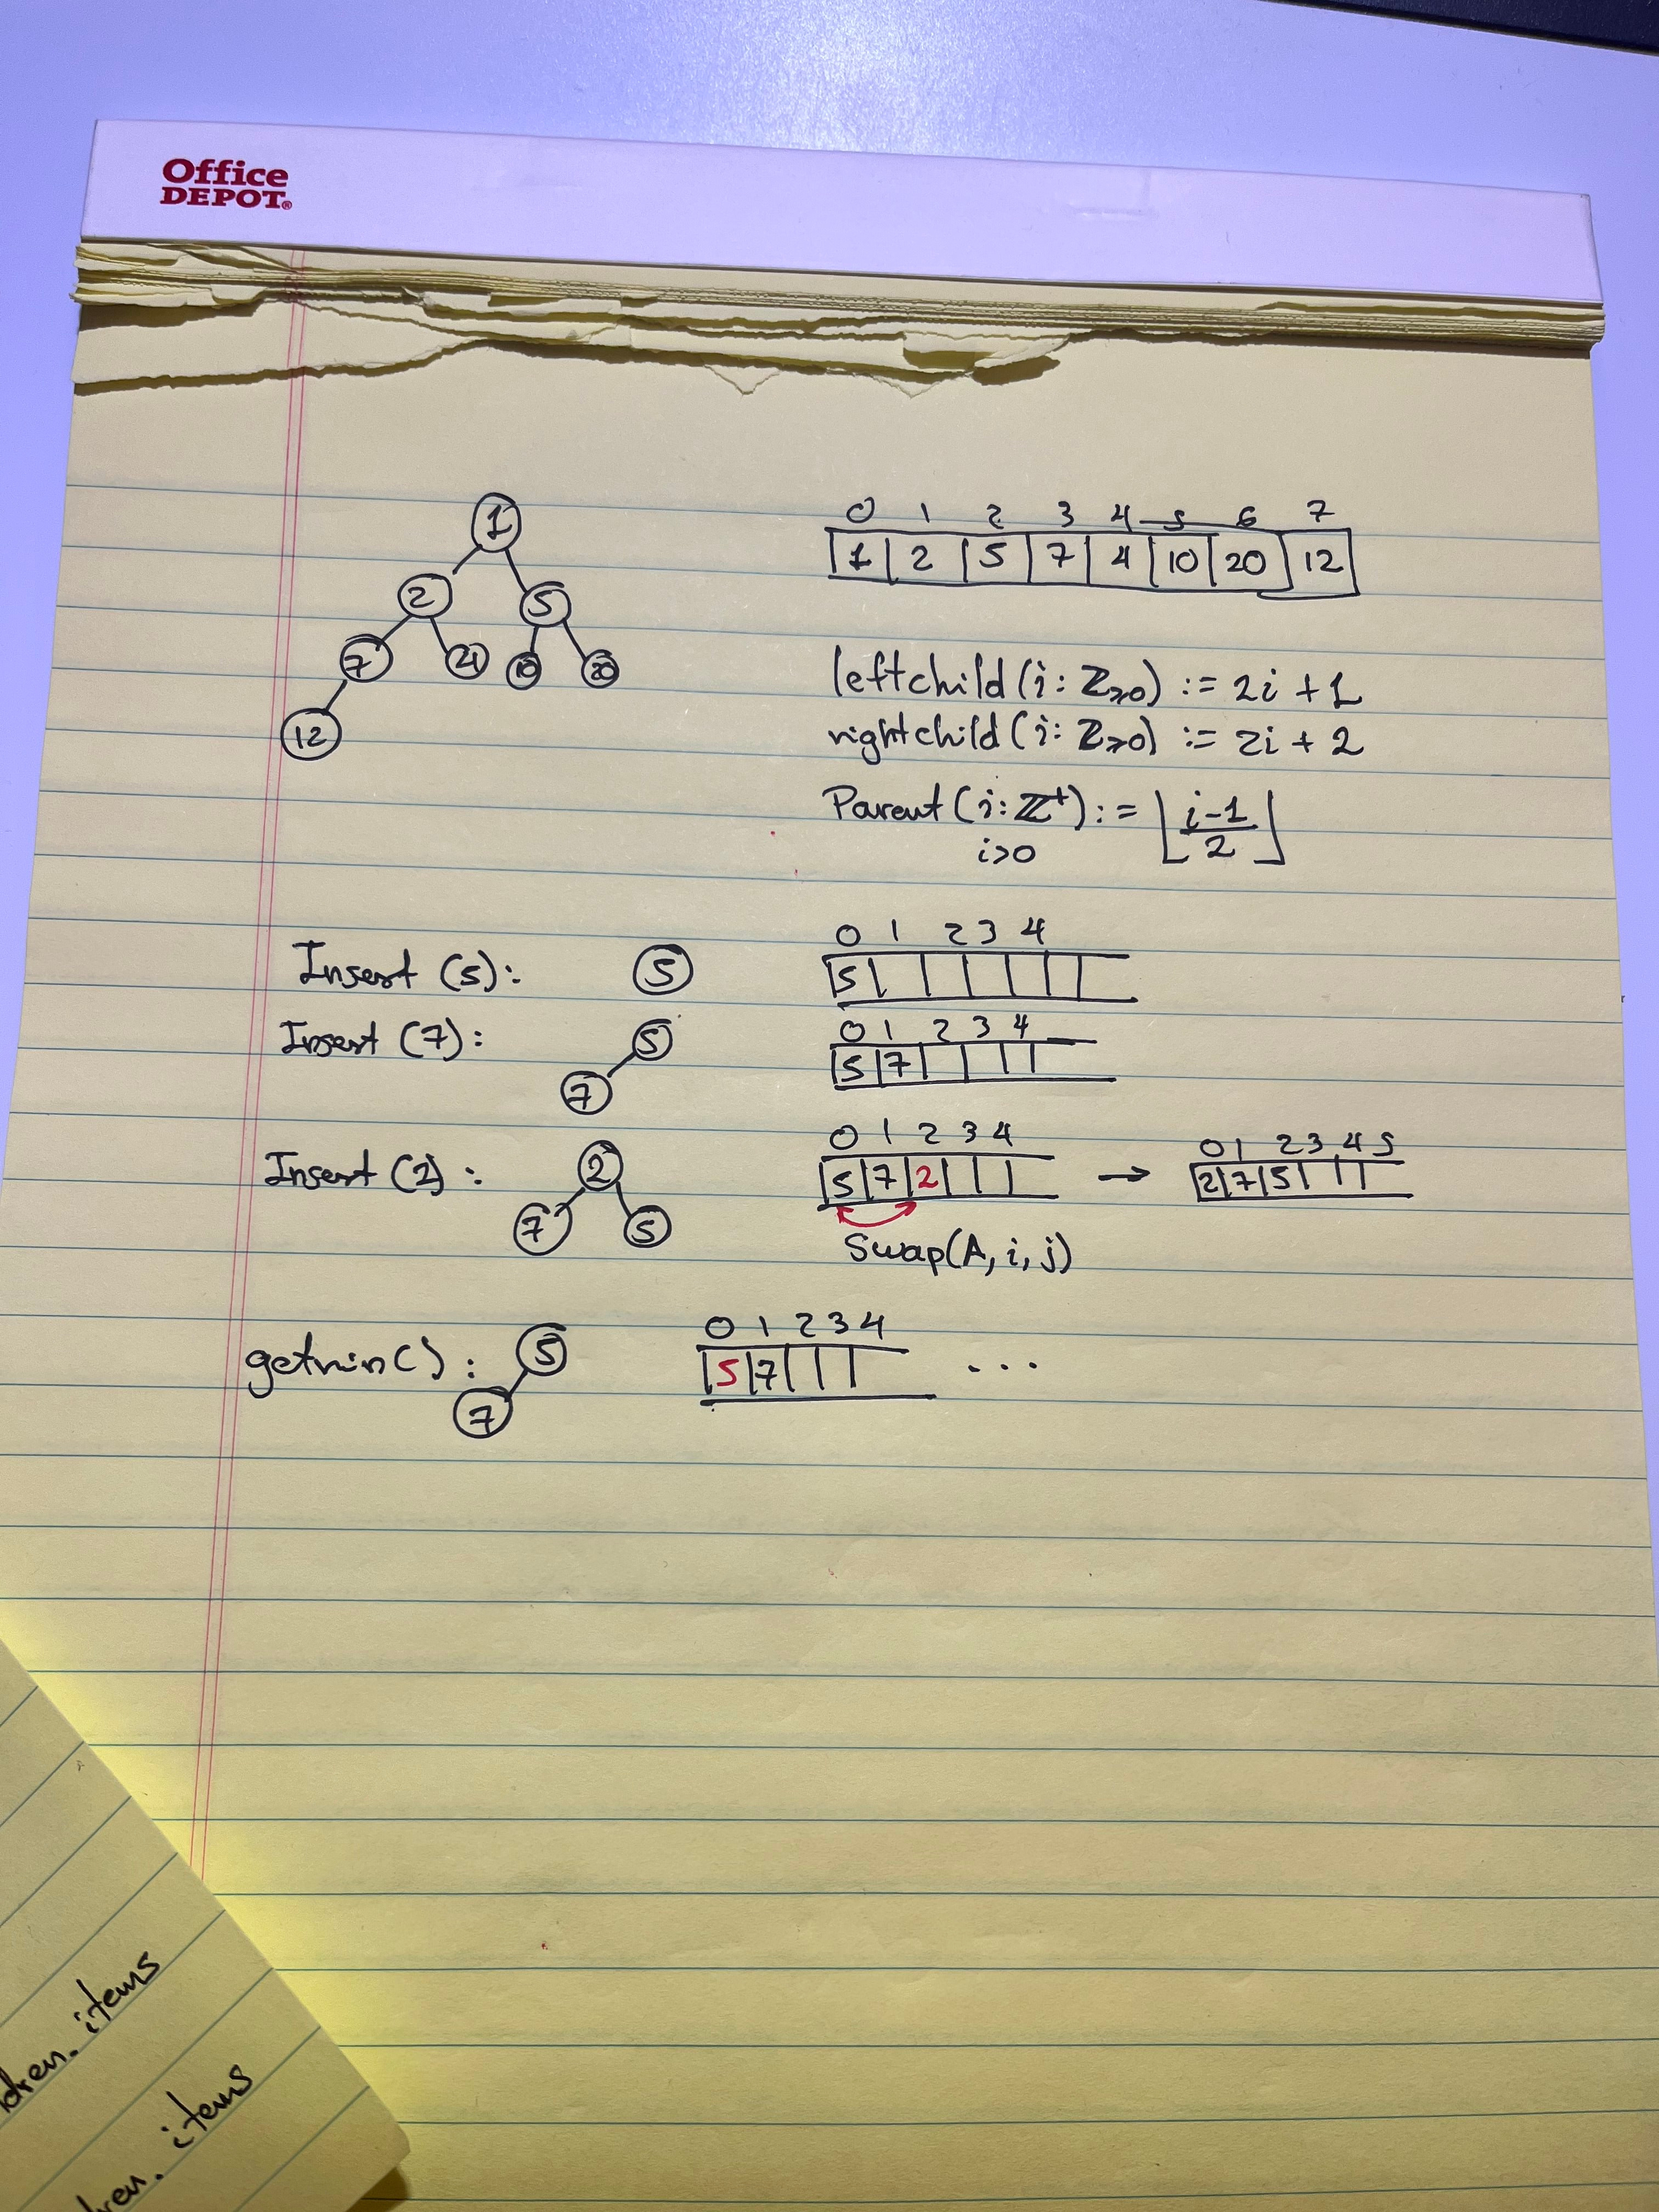 Office
DEPOT®
1
2 5
7 4 10 20
12
0 1 2 3 4 5 6 7
1 2 5 7 4 10 20 12
leftchild(i: ℤ≥0) := 2i + 1
rightchild(i: ℤ≥0) := 2i + 2
Parent(i: ℤ⁺) := ⌊(i-1)/2⌋
i>0
Insert (5): 5
0 1 2 3 4
5
Insert (7): 5
7
0 1 2 3 4
5 7
Insert (2): 2
7 5
0 1 2 3 4
5 7 2 →
0 1 2 3 4 5
2 7 5
Swap(A, i, j)
getmin(): 5
7
0 1 2 3 4
5 7 ...
dren. items
ren. items